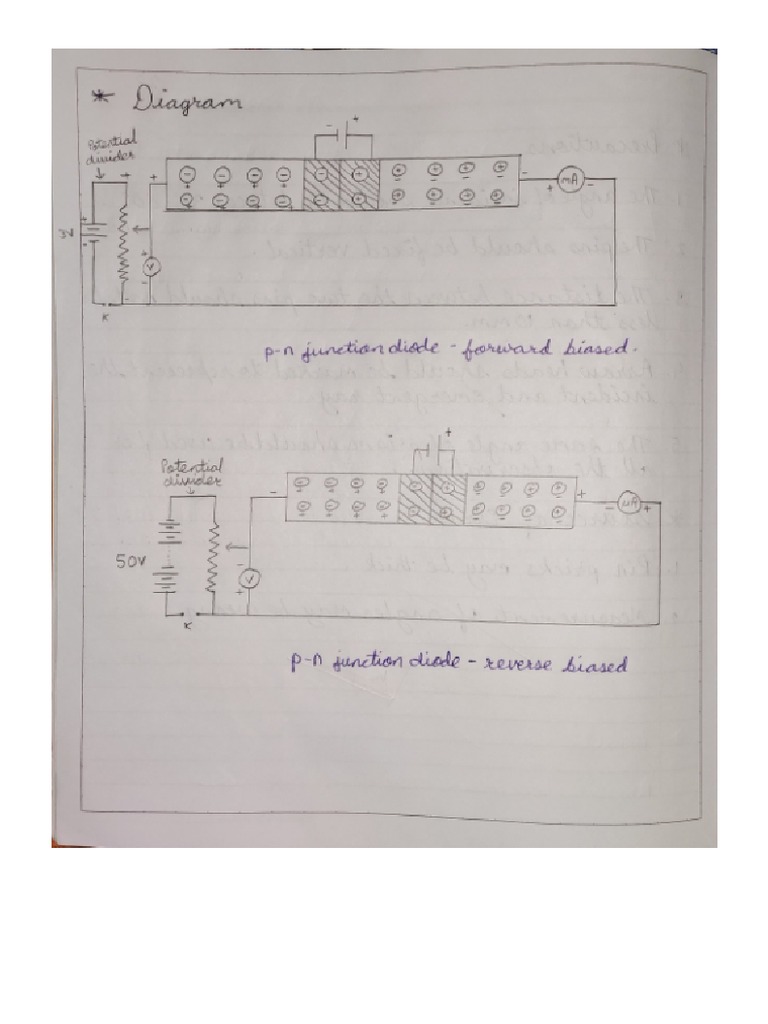 * Diagram
Potential
divider
mA
V
K
p-n junction diode - forward biased.
Potential
divider
50V
μA
V
K
p-n junction diode - reverse biased